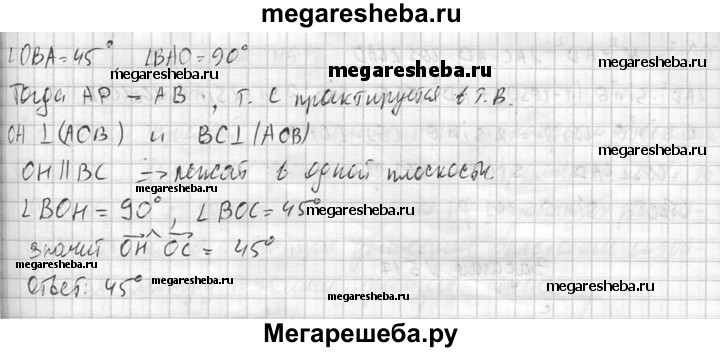 megaresheba.ru
∠OBA = 45°, ∠BAO = 90°
megaresheba.ru
megaresheba.ru
megaresheba.ru
Тогда AP = AB, т. С проектируется в т. В.
OH ⊥ (AOB) и BC ⊥ (AOB)
megaresheba.ru
OH || BC → лежат в одной плоскости.
megaresheba.ru
megaresheba.ru
∠BOH = 90°, ∠BOC = 45°
megaresheba.ru
значит OH^OC = 45°
megaresheba.ru
megaresheba.ru
Ответ: 45°
megaresheba.ru
Мегарешеба.ру